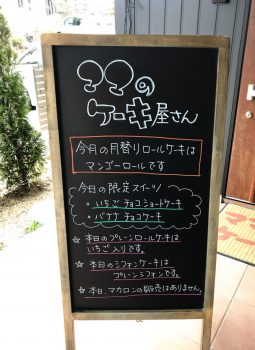 ??の
ケーキ屋さん
今月の月替りロールケーキは
マンゴーロールです
今日の限定スイーツ
・いちごチョコショートケーキ
・バナナチョコケーキ
☆本日のプレーンロールケーキは
いちご入りです。
☆本日のシフォンケーキは
プレーンシフォンです。
☆本日、マカロンの販売はありません。